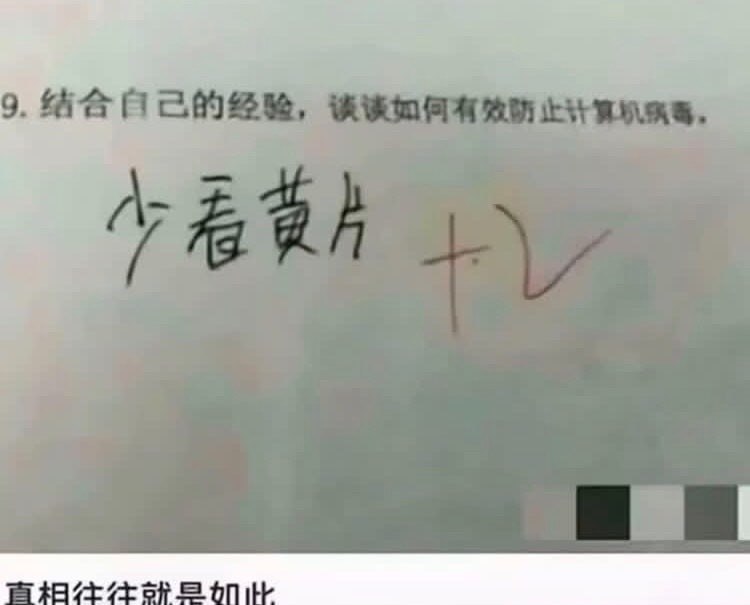 9. 结合自己的经验，谈谈如何有效防止计算机病毒。
少看黄片 +2
真相往往就是如此